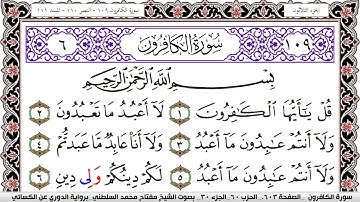 الجزء الثلاثون سورة الكافرون ١٠٩ - النصر ١١٠ - المسد ١١١
١٠٩ سُورَةُ الكَافِرُونَ ٦
بِسْمِ ٱللَّهِ ٱلرَّحْمَـٰنِ ٱلرَّحِيمِ
قُلْ يَـٰٓأَيُّهَا ٱلْكَـٰفِرُونَ ١ لَآ أَعْبُدُ مَا تَعْبُدُونَ ٢
وَلَآ أَنتُمْ عَـٰبِدُونَ مَآ أَعْبُدُ ٣ وَلَآ أَنَا۠ عَابِدٌ مَّا عَبَدتُّمْ ٤
وَلَآ أَنتُمْ عَـٰبِدُونَ مَآ أَعْبُدُ ٥ لَكُمْ دِينُكُمْ وَلِى دِينِ
سورة الكافرون . الصفحة ٦٠٣ . الحزب ٦٠ . الجزء ٣٠ . بصوت الشيخ مفتاح محمد السلطني برواية الدوري عن الكسائي